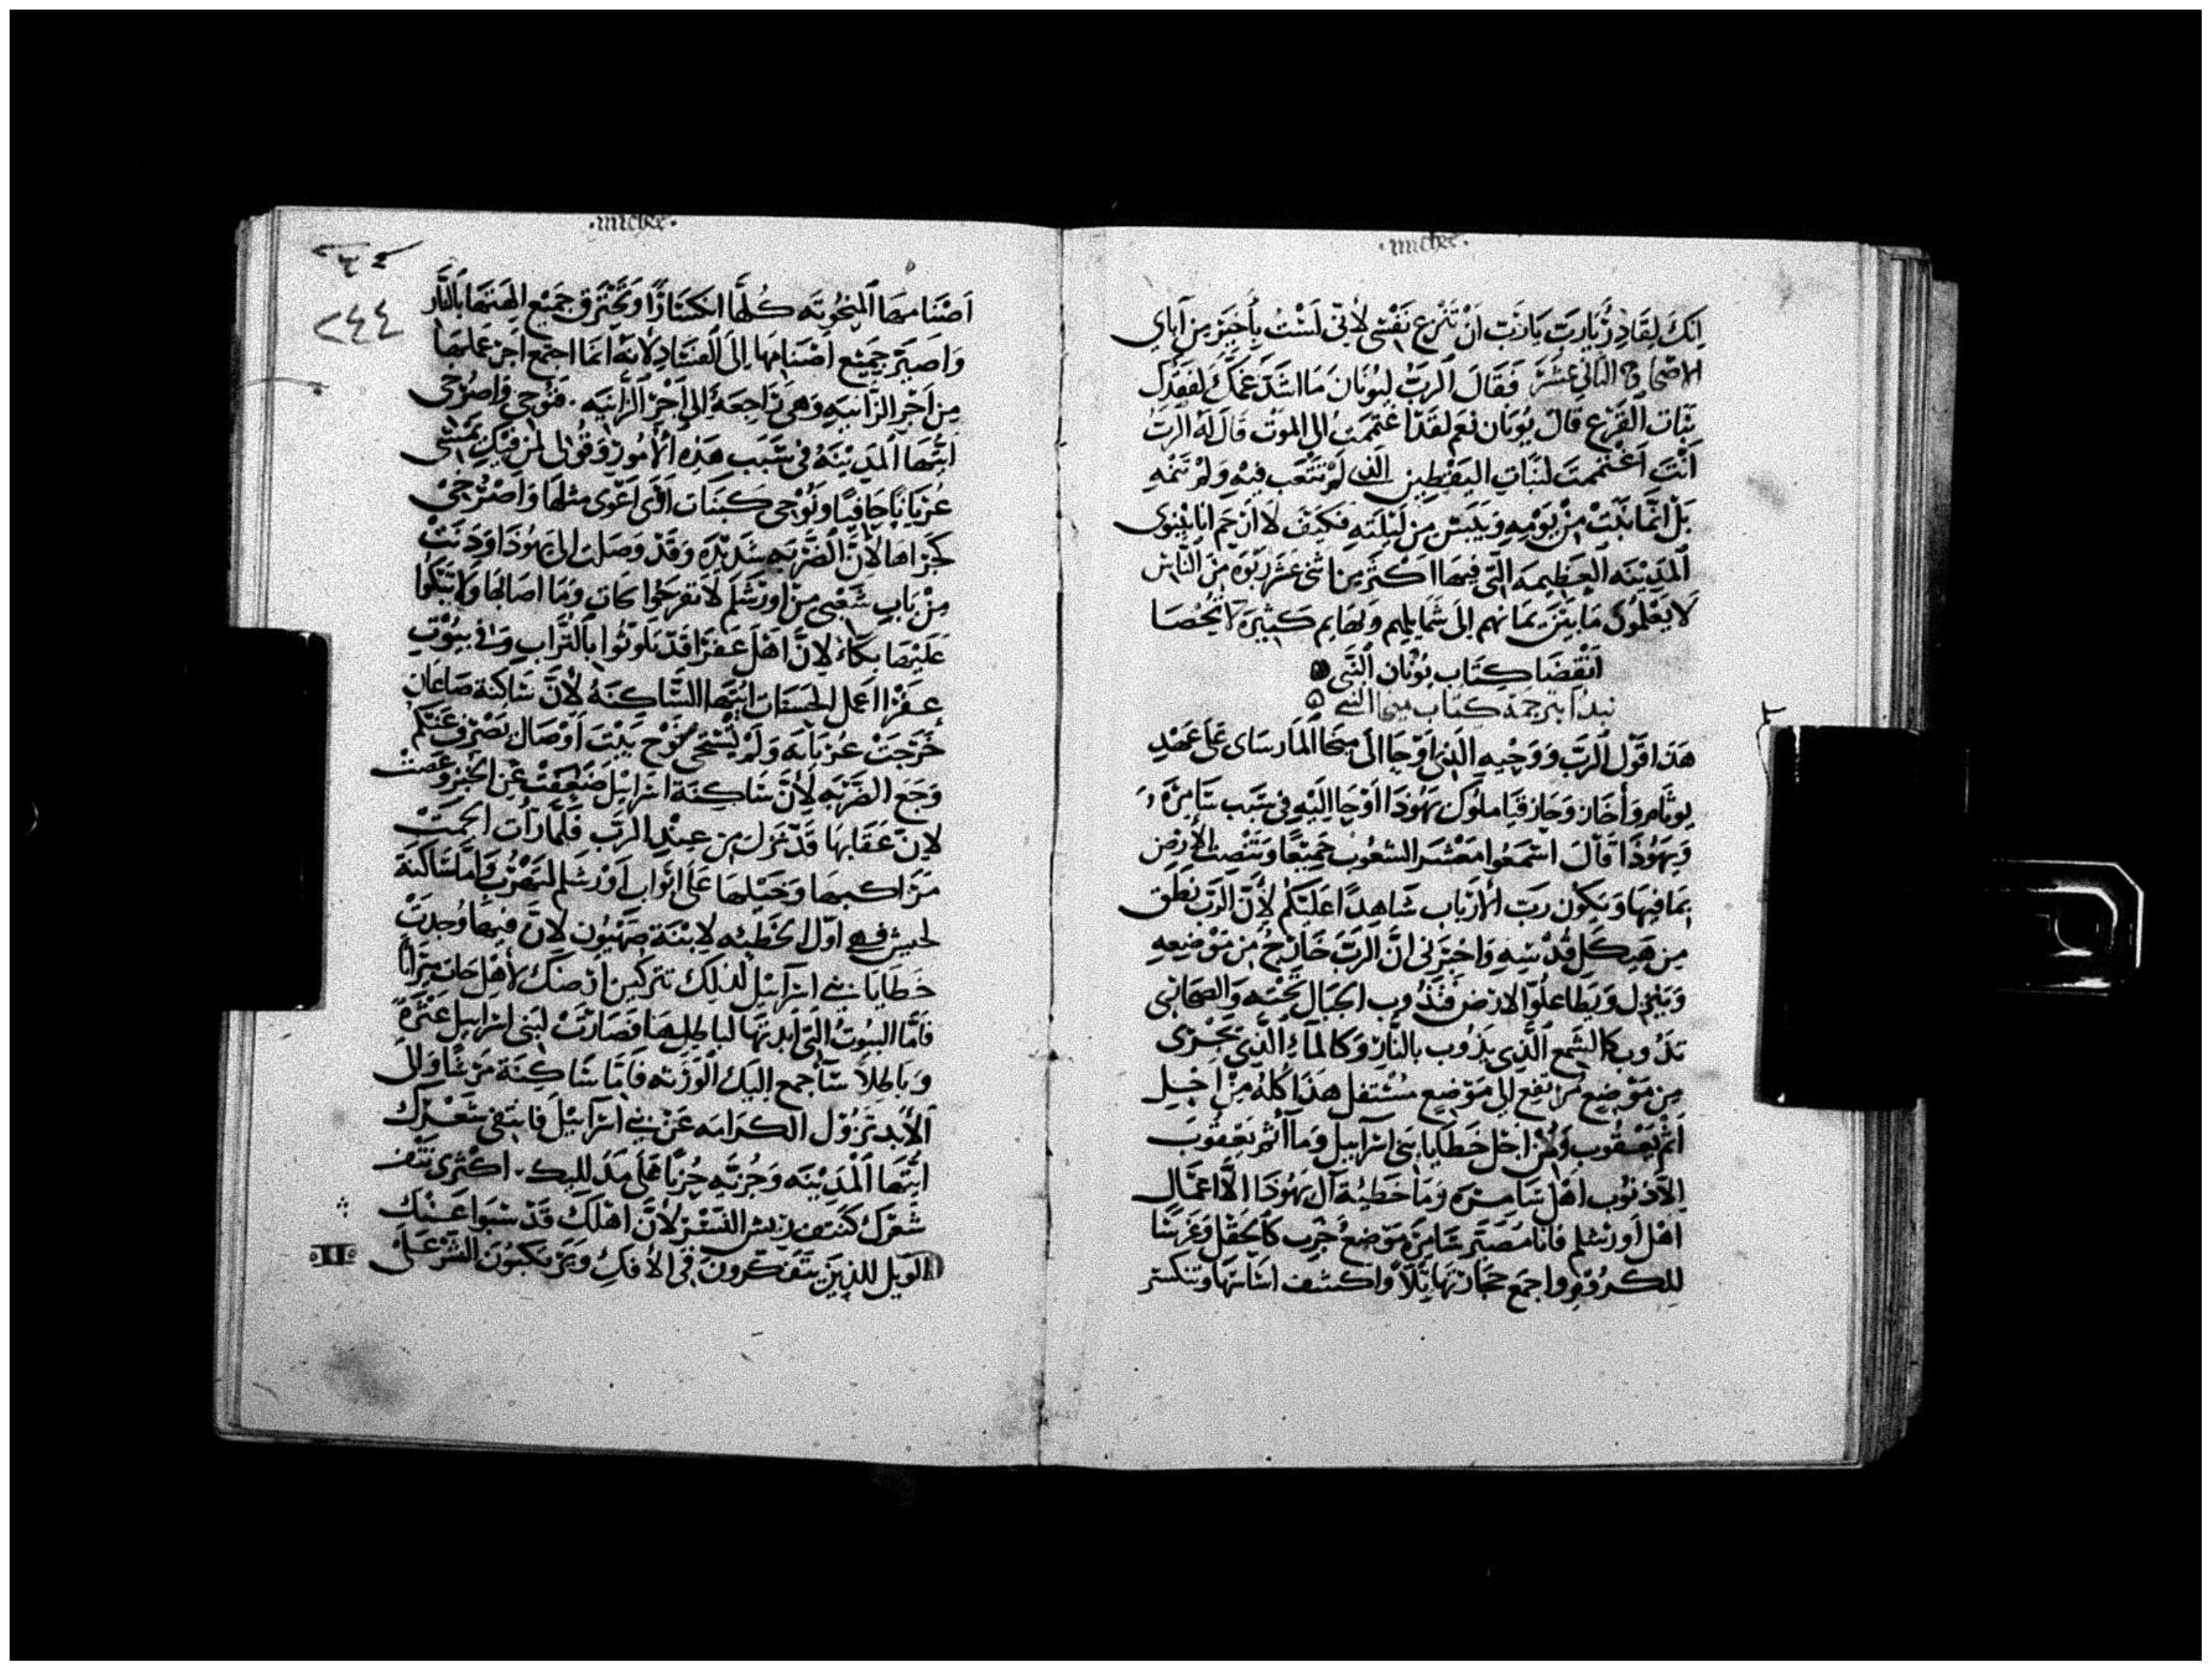 ·michee·
انك لقادرٌ يارب يارب ان تنزع نفسي لاني لست بأخير من آباي
الاصحاح الثاني عشر فقال الرب ليونان ما اشد غمك لفقدك
نبات القرع قال يونان نعم لقد اغتممت الى الموت قال له الرب
أنت اغتممت لنبات اليقطين الذي لم تتعب فيه ولم تنمه
بل انما نبت من يومه ويبس من ليلته فكيف لا ارحم انا نينوى
المدينه العظيمه التي فيها اكثر من اثني عشر ربوه من الناس
لا يعلموا ما بين يمانهم الى شمايلهم وبهايم كثيرة لا تحصا
انقضا كتاب يونان النبي
نبدا بترجمة كتاب ميخا النبي
هذا قول الرب ووحيه الذي اوحا الى ميخا المارساى على عهد
يوثام وأخاز وحازقيا ملوك يهوذا اوحا اليه في سبب سامرة
ويهوذا قال اسمعوا معشر الشعوب جميعا وتنصت الأرض
بما فيها ويكون رب الارباب شاهدا عليكم لأن الرب نطق
من هيكل قدسه واخبرني ان الرب خارج من موضعه
وينزل ويطا علوا الارض فتذوب الجبال تحته والصحاري
تذوب كالشمع الذي يذوب بالنار وكالماء الذي يجرى
من موضع مرتفع الى موضع مستفل هذا كله من اجل
اثم يعقوب ومن اجل خطايا بني اسرايل وما اثم يعقوب
الا ذنوب اهل سامرة وما خطية آل يهوذا الا اعمال
اهل اورشلم فانا مصير سامرة موضع خرب كالحقل وغرسا
للكروم واجمع حجارتها تلا واكشف اساسها وتنكسر
·michee·
٢٤٤
اصنامها المنحوته كلها انكسارا وتحترق جميع الهتها بالنار
واصير جميع اصنامها الى الفساد لانه انما اجتمع اجر عملها
من اجر الزانيه وهي راجعة الى اجر الزانيه. فنوحي واصرخى
ايتها المدينة في سبب هذه الأمور وقولى لمن فيك يمشى
عريانا حافيا ونوحى كبنات اوى اعوى مثلها واصرخى
كجراها لان الضربه شديده وقد وصلت الى يهوذا ودنت
من باب شعبي من اورشلم لا تفرحوا كات وما اصابها ولا تبكوا
عليها بكاء لان اهل عفرا قد تلوثوا بالتراب وفي بيوت
عفرا اعمل الحسنات ايتها الساكنة لأن ساكنة صاعان
خرجت عريانه ولم تستحى نوح بيت اوصال يصرف عنكم
وجع الضربه لأن ساكنة اسرايل ضعفت عن الخير وعصت
لان عقابها قد نزل من عند الرب فلما رأت الجمت
مراكبها وخيلها على ابواب اورشلم لتهرب واما ساكنة
لحيش فهي اول الخطيه لابنة صهيون لان فيها وجدت
خطايا بني اسرايل لذلك تتركين ارضك لأهل حات ميراثا
فاما البيوت التي ابدتها اباطلها فصارت لبني اسرايل عثرة
وباطلا ساجمع اليك الورثه فاما ساكنة مريشا والى
الأبد تزول الكرامه عن بني اسرايل فانتفى شعرك
ايتها المدينه وجزيه جزا على مدلليك. اكثرى نتف
شعرك كنتف ريش النسر لأن اهلك قد سبوا عنك
الويل للذين يتفكرون في الأفك ويرتكبون الشر على